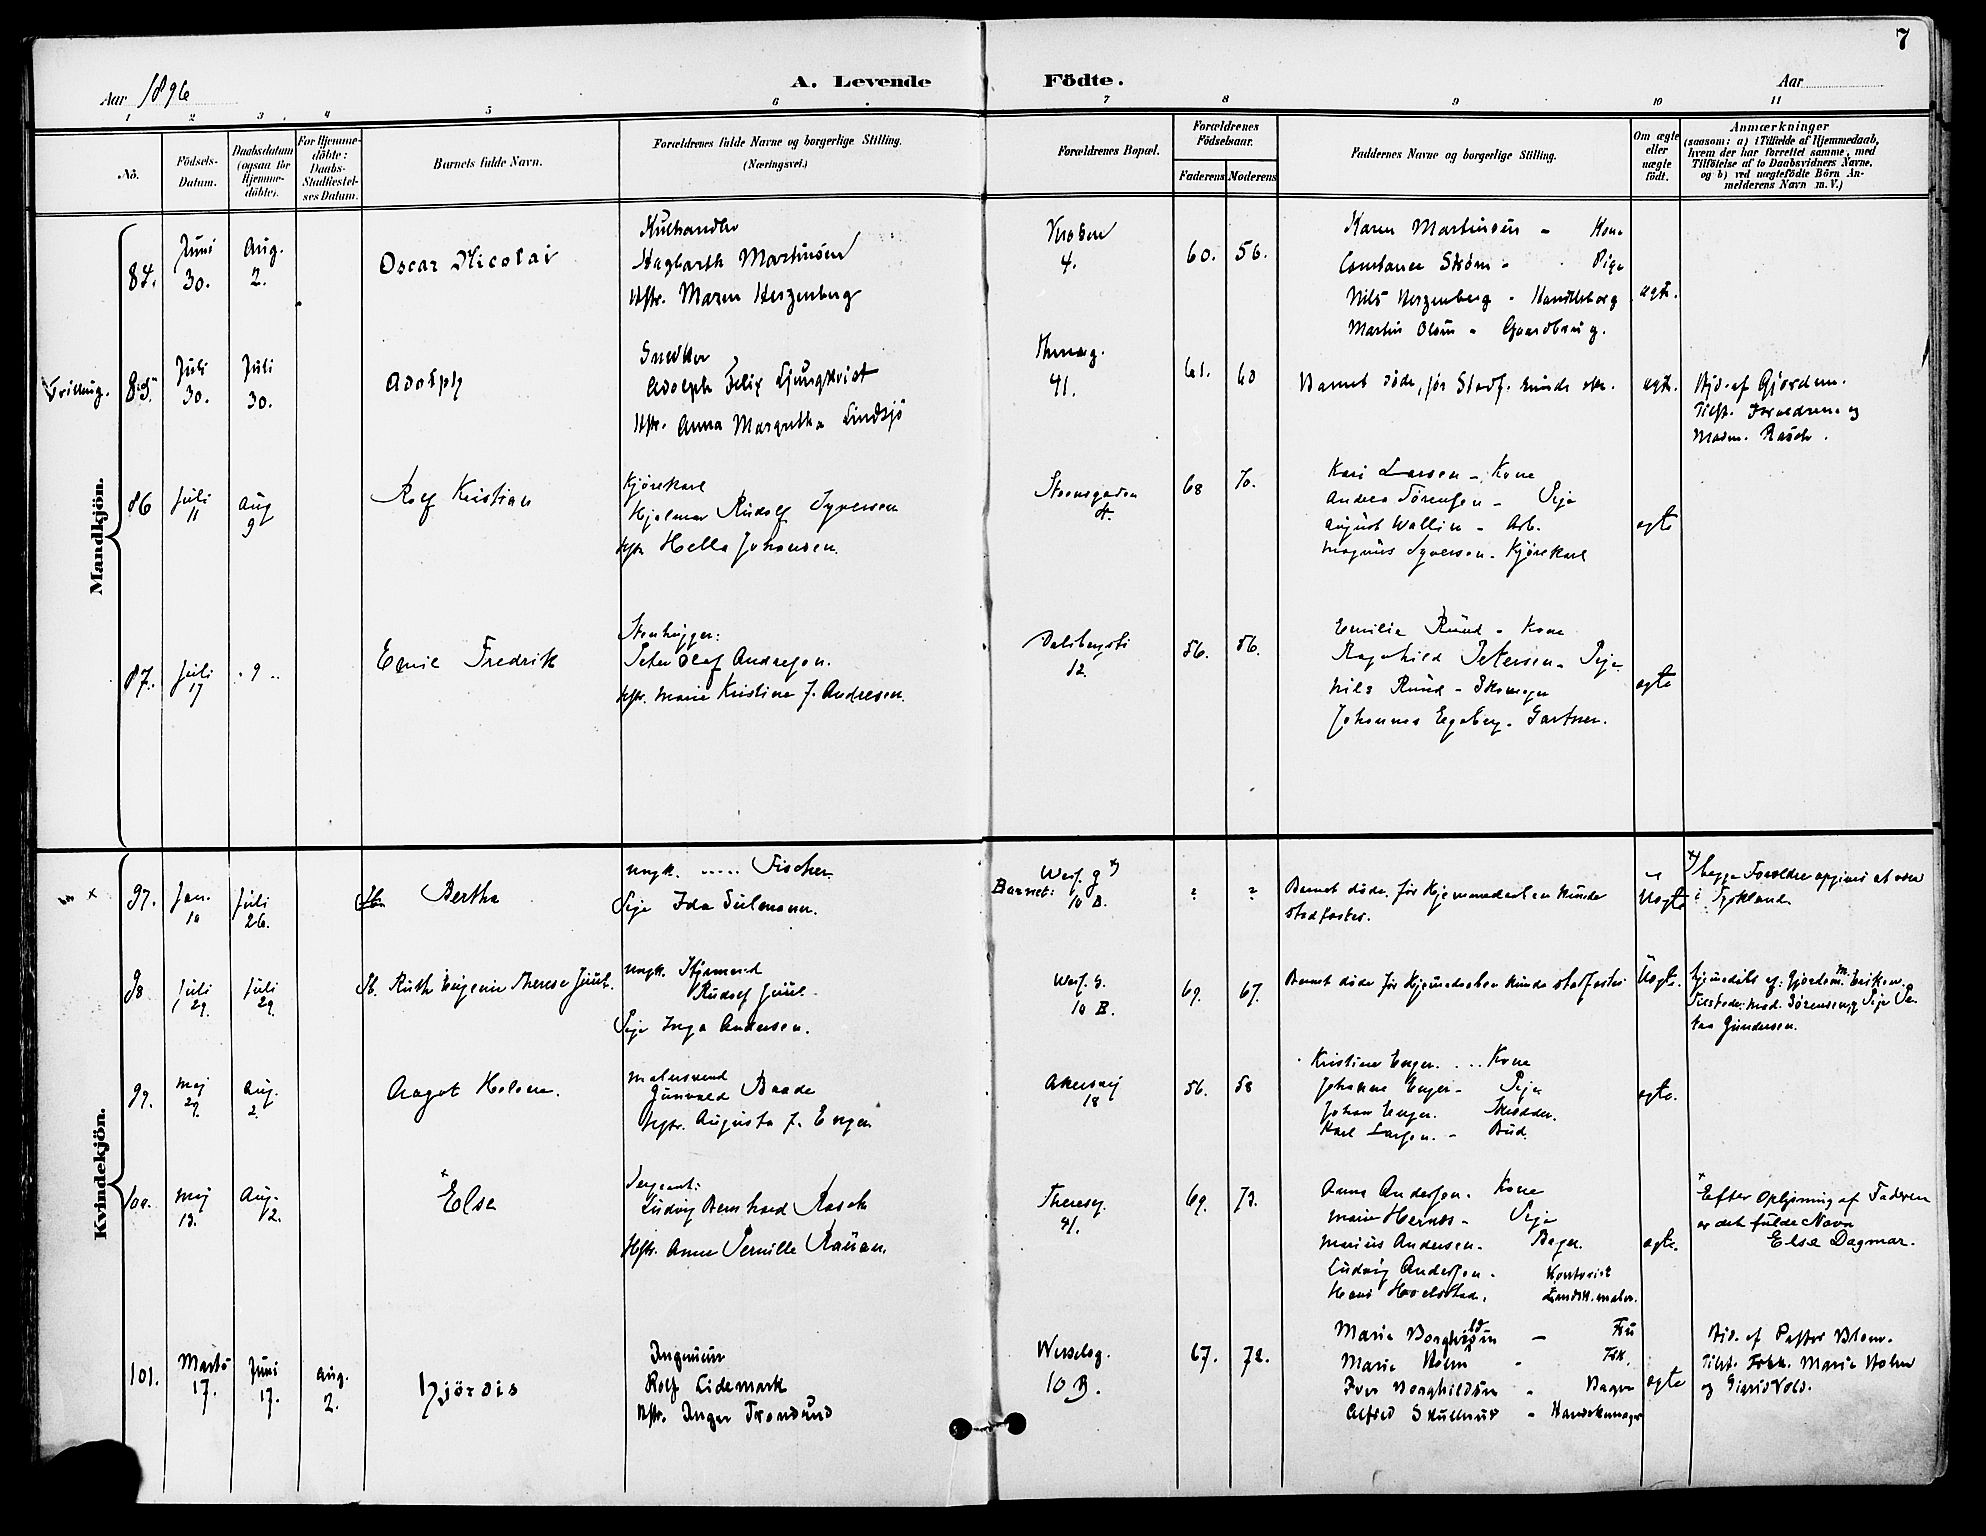 7
Aar 1896
A. Levende Födte.
Aar
1 2 3 4 5 6 7 8 9 10 11
No.
Födsels-Datum.
Daabsdatum (ogsaa for Hjemmedöbte).
For Hjemmedöbte: Daabs-Stadfæstelses Datum.
Barnets fulde Navn.
Forældrenes fulde Navne og borgerlige Stilling.
(Næringsvei.)
Forældrenes Bopæl.
Forældrenes Födselsaar.
Faderens Moderens
Faddernes Navne og borgerlige Stilling.
Om ægte eller uægte födt.
Anmærkninger
(saasom: a) i Tilfælde af Hjemmedaab,
hvem der har forrettet samme, med
Tilföielse af to Daabsvidners Navne,
og b) ved uægtefödte Börn Anmelderens Navn m. V.)
Mandkjön.
84.
Juni 30.
Aug. 2.
Oscar Nicolai
Kulhandler
Hagbarth Martinsen
Hstr. Maren Herzenberg
4.
60. 56.
Karen Martinsen - Kone
Constance Sköm - Pige
Nils Herzenberg - Handelsborg
Martin Olsen - Gaardbrug.
ægte.
Trilling.
85.
Juli 30.
Juli 30.
Adolph
Snedker
Adolph Felix Ljungkvist
Hstr. Anna Margretha Lindsjö
Thereseg.
41.
61. 60
Barnet döde, för Stadf. kunde ske.
ægte.
Hjd. af Gjordem.
Tilst. Forældrene og
Madm. Rasch.
86
Juli 11
Aug 9
Rolf Kristian
Kjörekarl
Hjalmar Rudolf Syversen
Hstr Hella Johansen.
Steensgaden
68 70.
Kari Larsen - Kone
Andrea Sörensen - Pige
August Wallin - Arb.
Magnus Syversen - Kjörekarl
ægte
87.
Juli 17
" 9 "
Emil Fredrik
Stenhugger:
Peter Olaf Andresen.
Hstr. Marie Kristine J. Andresen.
Dalsbergsti
12.
56. 56.
Emilie Ruud - Kone
Ragnhild Petersen - Pige
Nils Ruud - Skomager
Johannes Egeberg - Gartner.
ægte
Kvindekjön.
97.
Jan. 10
Juli 26.
Bertha
ungk. ..... Fischer
Pige Ida Sulmann.
Barnet: 10 B.
? ?
Barnet döde för Hjemmedaaben kunde
stadfæstes.
Uægte
x) begge Forældre opgives at være
i Tyskland
98
Juli 29.
Juli 29.
Ruth Eugenie Therese Juul.
ungk. Styrmand
Rudolf Juul.
Pige Inga Andersen.
10 B.
69. 67.
Barnet döde för Hjemmedaaben kunde stadfæstes
Uægte.
Hjemmedöbt af: Gjordem. M. Eriksen.
Tilstede: Mad. Sörensen, Pige Petra
Gundersen.
99.
Maj 29.
Aug. 2.
Aagot Helene.
Malersvend
Gunvald Baade
Hstr. Augusta J. Enger
Akersvej
18
56. 58
Kristine Enger. ... Kone
Johanne Enger - Pige
Johan Enger. Skrædder.
Karl Larsen. - Bud.
ægte.
100.
Maj 13.
Aug. 2.
x Else
Sergeant:
Ludvig Bernhard Rasch
Hstr. Anne Pernille Rauan.
Theresg.
41.
69. 73.
Anna Andersen. Kone
Marie Hernes - Pige
Marius Andersen. - Bager.
Ludvig Andersen. Kontorist
Hans Hoelstad. Landsk.maler.
ægte.
x Efter Oplysning af Faderen
er det fulde Navn
Else Dagmar.
101.
Marts 17.
Juni 17.
Aug. 2.
Hjördis
Ingeniör
Rolf Lidemark
Hstr. Inger Trondsud
Wesselsg.
10 B.
67. 72.
Marie Borghildsen - Fru
Marie Holm - Frk.
Iver Borghildsen - Bager
Alfred Skullerud - Handskemager
ægte
Hjd. af Pastor Blom.
Tilst. Frk. Marie Holm
og Sigrid Vold.